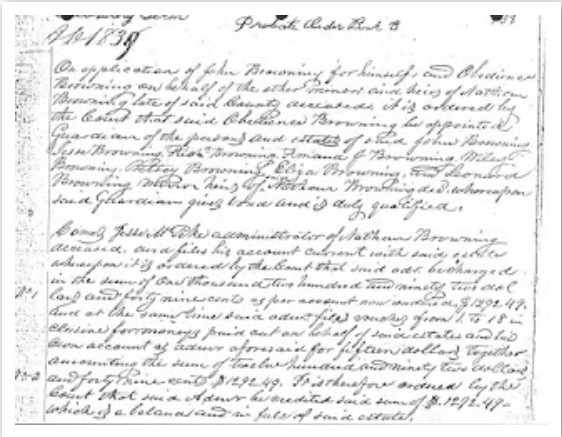 Probate Order Book B
On application of John Browning for himself, and Obedience
Browning on behalf of the other minors and heirs of Nathan
Browning late of said County deceased, it is ordered by
the Court that said Obedience Browning be appointed
Guardian of the persons and estates of said John Browning
Jesse Browning, Browning, Amanda J Browning, Wiley
Browning, Betsey Browning, Eliza Browning, and Leonard
Browning minor heirs of Nathan Browning dec'd. whereupon
said Guardian gives bond and is duly qualified.
Comes Jesse administrator of Nathan Browning
deceased. and files his account current with said estate
whereupon it is ordered by the Court that said adr. be charged
No. 1
in the sum of One thousand two hundred and ninety two dol
lars and forty nine cents as per account now $1292.49.
and at the same time said files from 1 to 18 in
clusive for moneys paid out on behalf of said estate and his
own account as aforesaid for fifteen dollars together
amounting the sum of twelve hundred and ninety two dollars
No. 2
and forty nine cents $1292.49. It is therefore ordered by the
Court that said Admr be credited said sum of $1292.49-
which is a balance and in full of said estate.